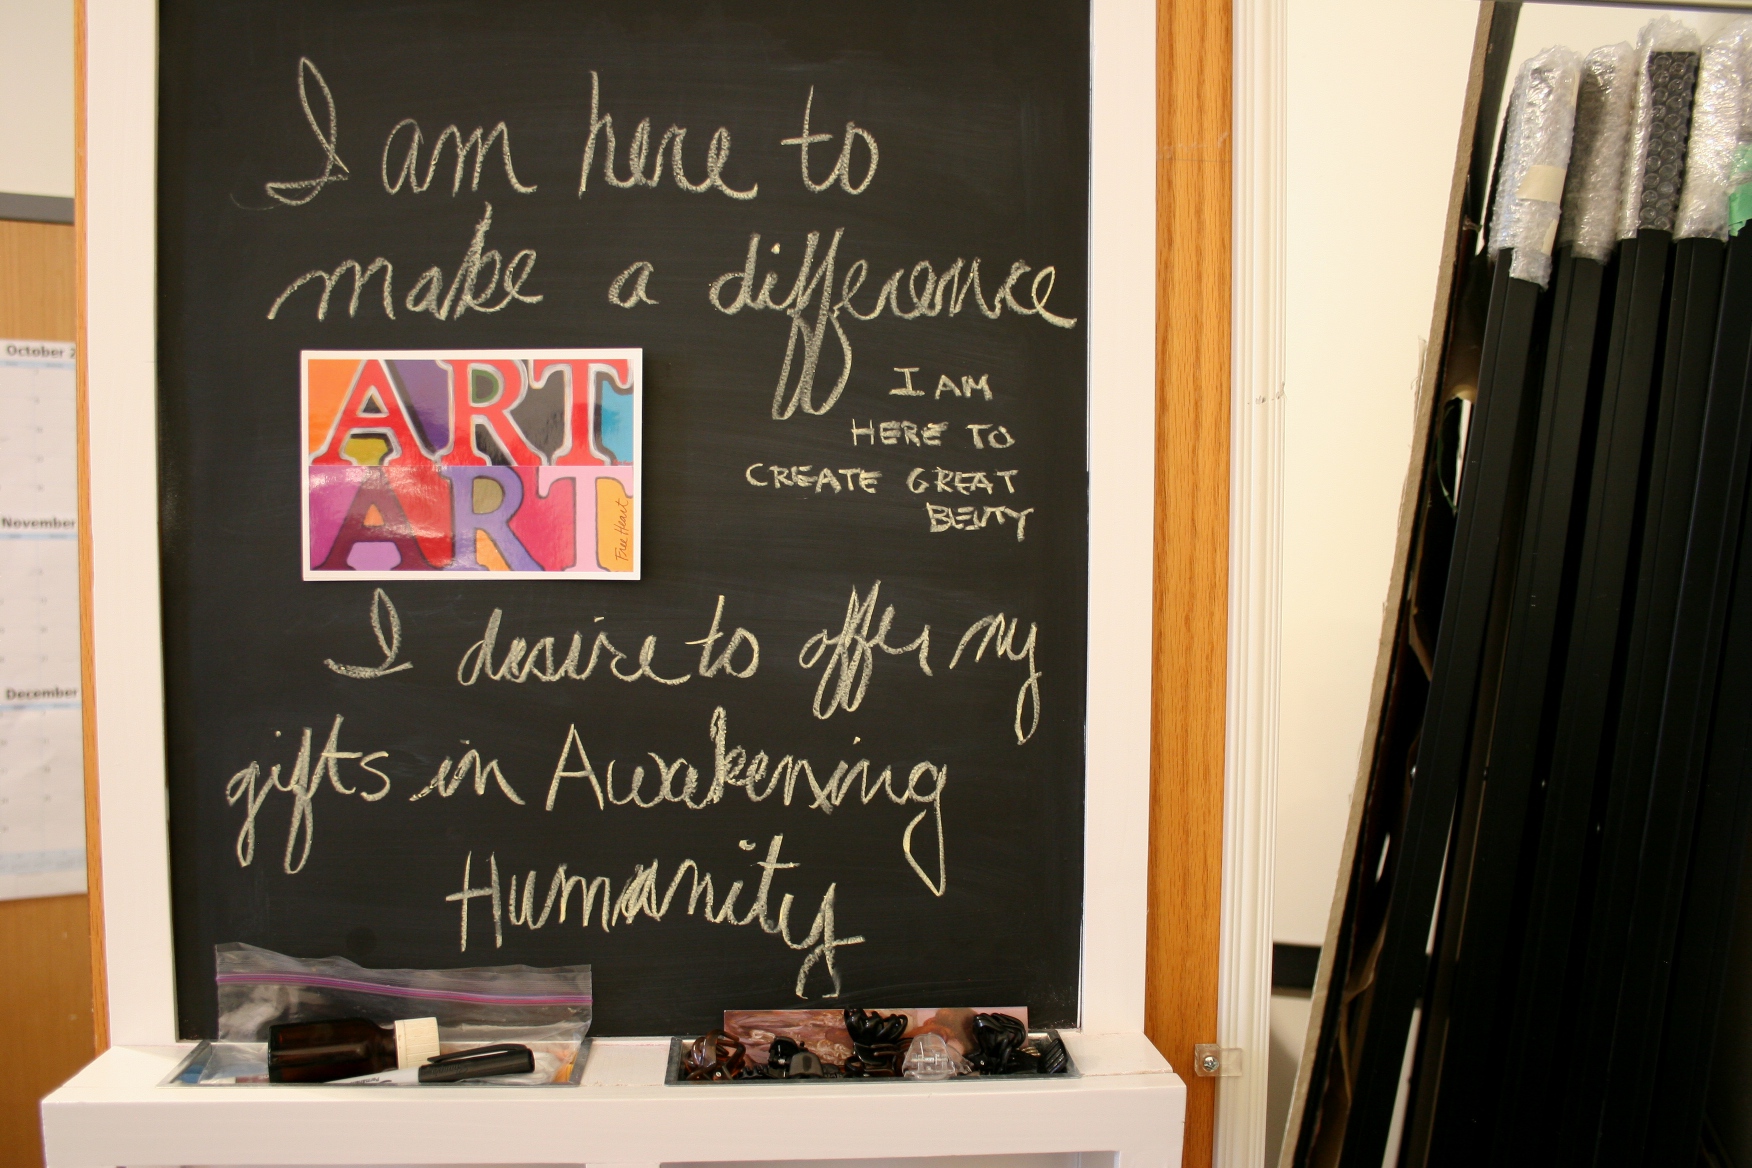 I am here to
make a difference
ART
ART
Free Heart
I AM
HERE TO
CREATE GREAT
BEUTY
I desire to offer my
gifts in Awakening
Humanity
October 2
November
December